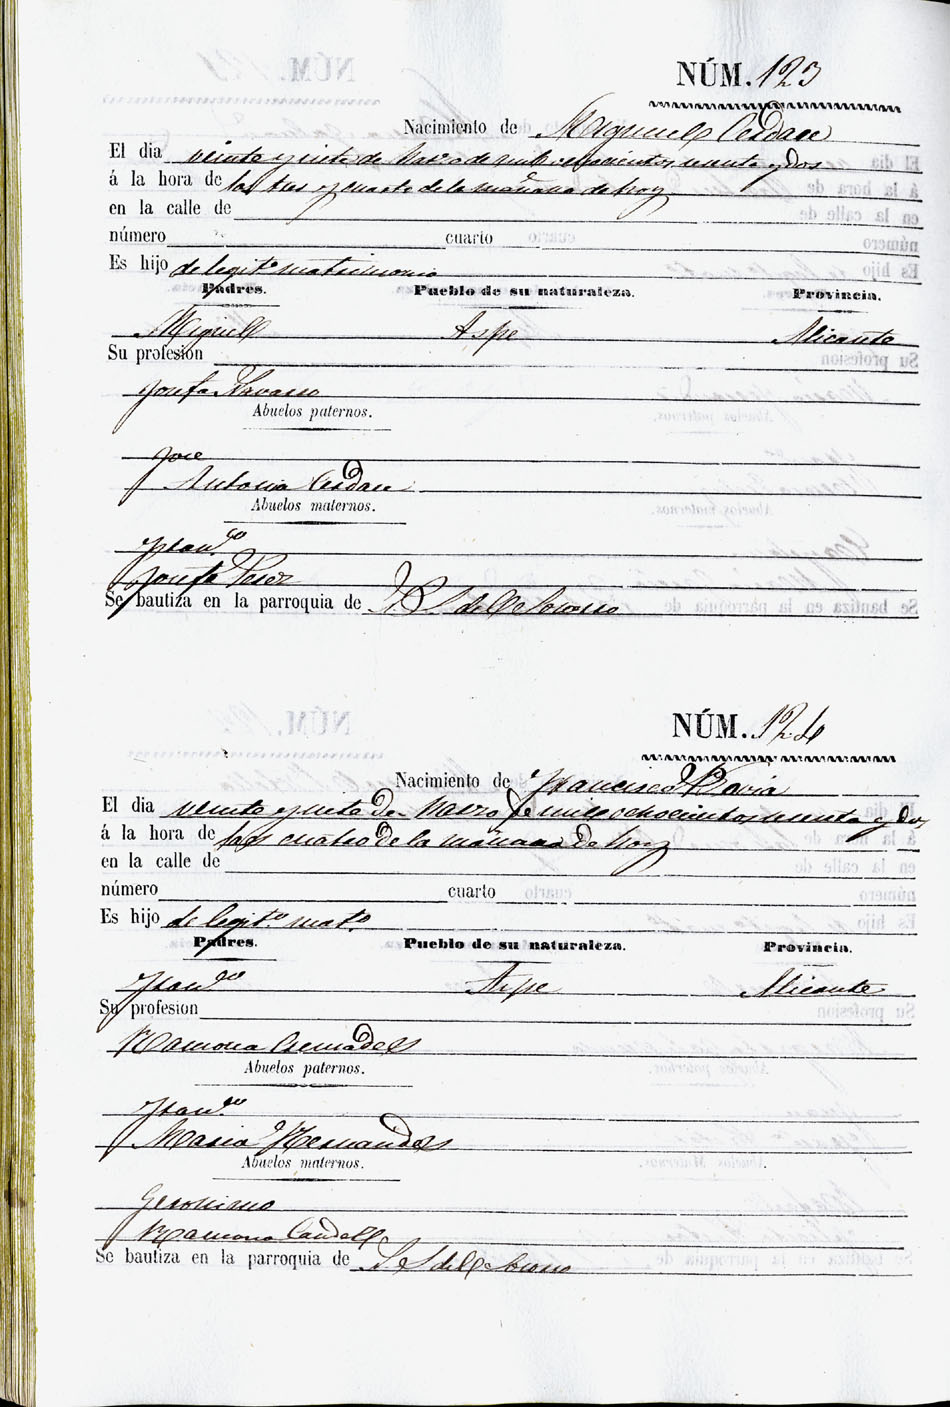 NÚM. 123
Nacimiento de Miguel Cerdan
El dia veinte y siete de Marzo de mil ochocientos sesenta y dos
á la hora de las tres y cuarto de la mañana de hoy
en la calle de
número cuarto
Es hijo de legit.º matrimonio
Padres. Pueblo de su naturaleza. Provincia.
Miguel Aspe Alicante
Su profesión
Josefa Navarro
Abuelos paternos.
Jose
Antonia Cerdan
Abuelos maternos.
Fran.co
Josefa Perez
Se bautiza en la parroquia de N S del Socorro
NÚM. 124
Nacimiento de Francisco Pavia
El dia veinte y siete de Marzo de mil ochocientos sesenta y dos
á la hora de las cuatro de la mañana de hoy
en la calle de
número cuarto
Es hijo de legit.º mat.º
Padres. Pueblo de su naturaleza. Provincia.
Fran.co Aspe Alicante
Su profesion
Ramona Cremades
Abuelos paternos.
Fran.co
Maria Hernandes
Abuelos maternos.
Geronimo
Ramona Candela
Se bautiza en la parroquia de del Socorro